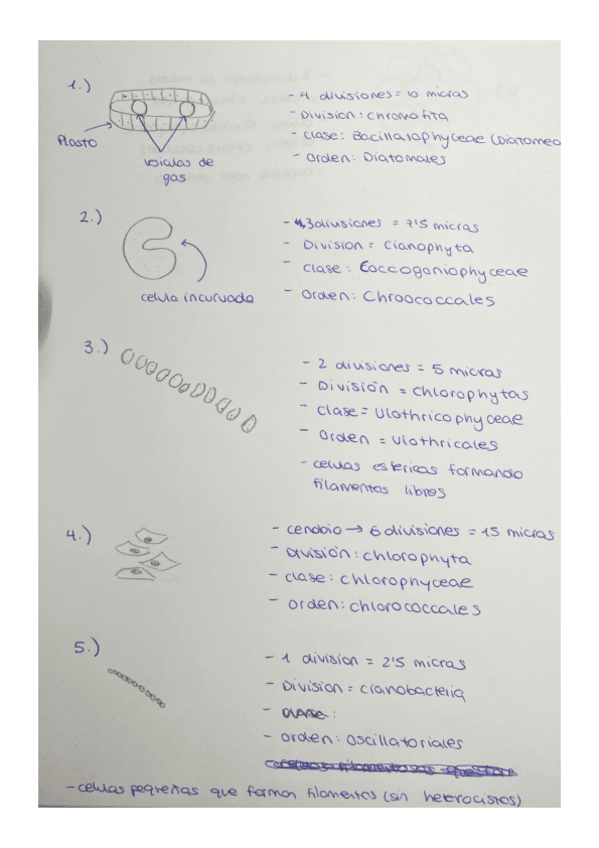 1.)
- 4 divisiones = 10 micras
- Division: chromofita
- clase: Bacillarophyceae (Diatomeo
- orden: Diatomales
Plasto
vesiculas de
gas
2.)
- 4,3 divisiones = 7'5 micras
- Division = Cianophyta
- clase: Coccogoniophyceae
- orden: Chroococcales
celula incurvada
3.)
- 2 divisiones = 5 micras
- División = chlorophytas
- clase = Ulothricophyceae
- Orden = Ulothricales
- celulas esfericas formando
filamentos libres
4.)
- cenobio → 6 divisiones = 15 micras
- División: chlorophyta
- clase: chlorophyceae
- orden: chlorococcales
5.)
- 1 division = 2'5 micras
- Division = cianobacteria
- clase:
- orden: oscillatoriales
- celulas pequeñas que forman filamentos (sin heterocistos)